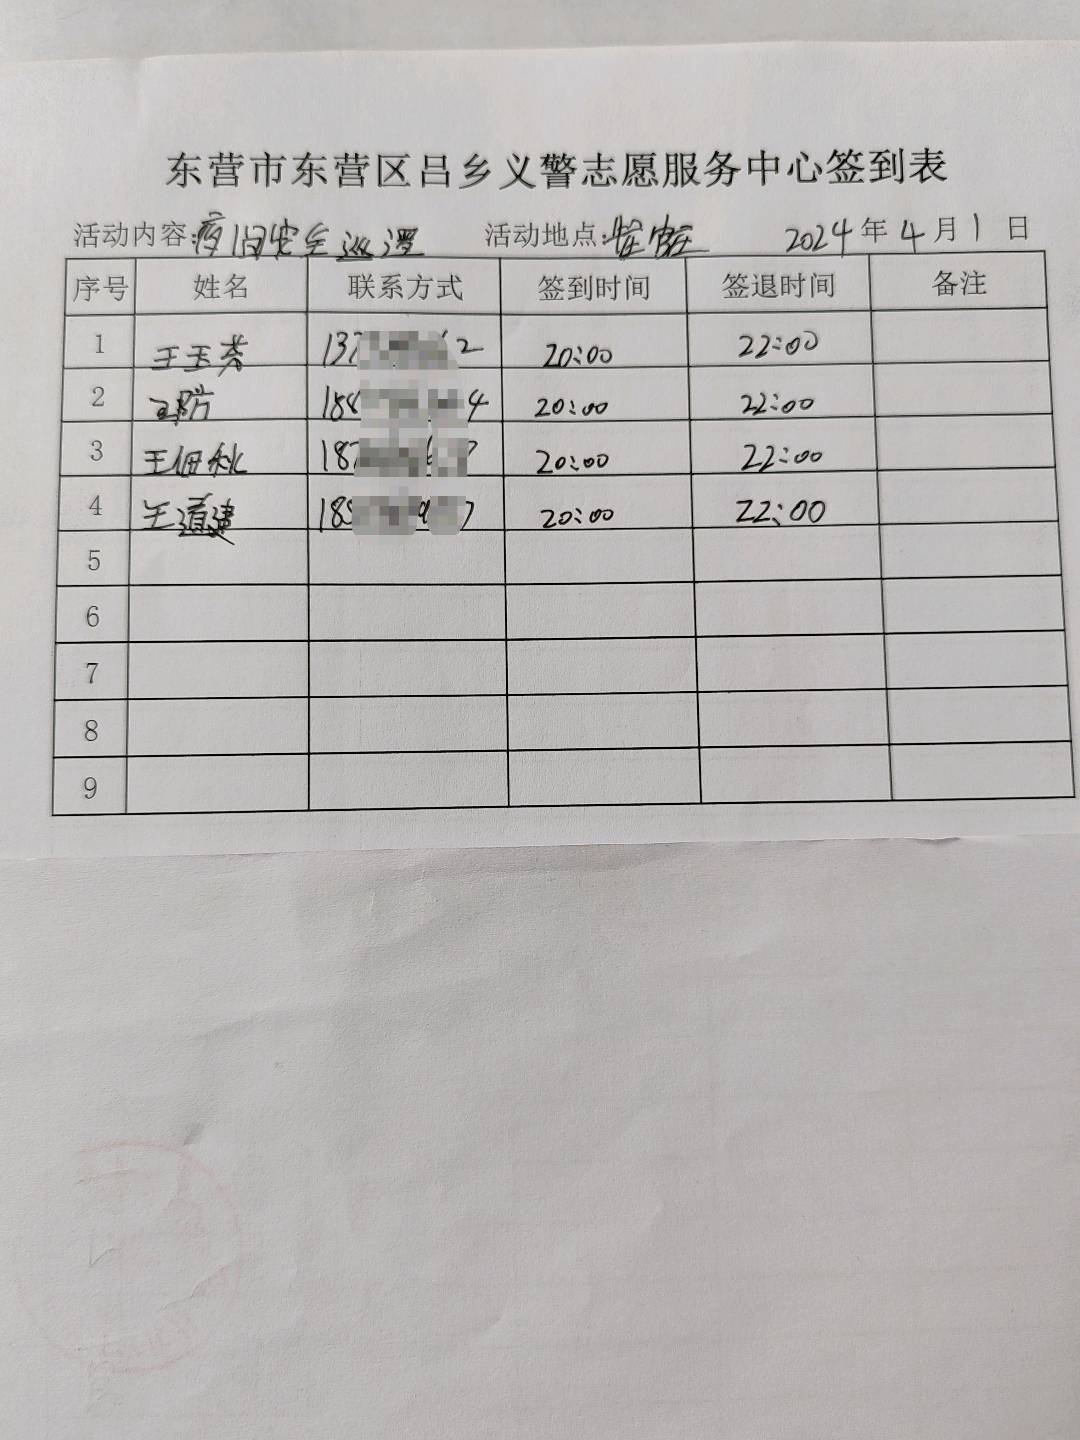 东营市东营区吕乡义警志愿服务中心签到表
活动内容:夜间安全巡逻 活动地点: 2024年4月1日
序号 姓名 联系方式 签到时间 签退时间 备注
1 王玉芳 137 2 20:00 22:00
2 王防 188 4 20:00 22:00
3 王佃秋 187 7 20:00 22:00
4 王道建 188 7 20:00 22:00
5
6
7
8
9